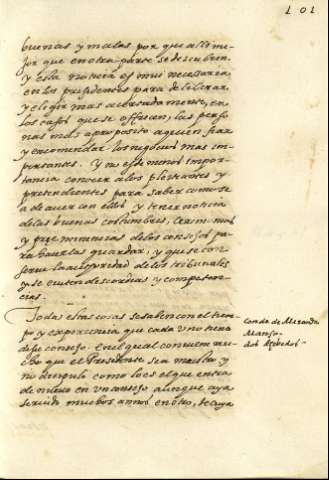 101
buenas y malas por que alli me
jor que en otra parte se descubren
y esta noticia es mui necessaria
en los presidentes para deliberar
y eligir mas acertada mente, en
los casos que se offrecen, las perso
nas mas aproposito a quien fiar
y encomendar los negocios mas im
portantes. Y no es de menos impor
tancia conocer a los pleiteantes y
pretendientes para saber como se
a de auer con ellos y tener noticia
de las buenas costumbres, cerimonias
y preeminencias de los consejos pa
ra hacerlas guardar, y que se con
serue la auctoridad de los tribunales
y se euiten discordias y competen
cias.
Todas estas cosas se saben con el tiem
po y experiencia que cada uno tiene
de su consejo en el qual conuiene mu
cho que el Presidente sea maestro y
no discipulo como lo es el que entra
de nuevo en un consejo aunque aya
seruido muchos annos en otro, de cuya
Conde de
Alonso